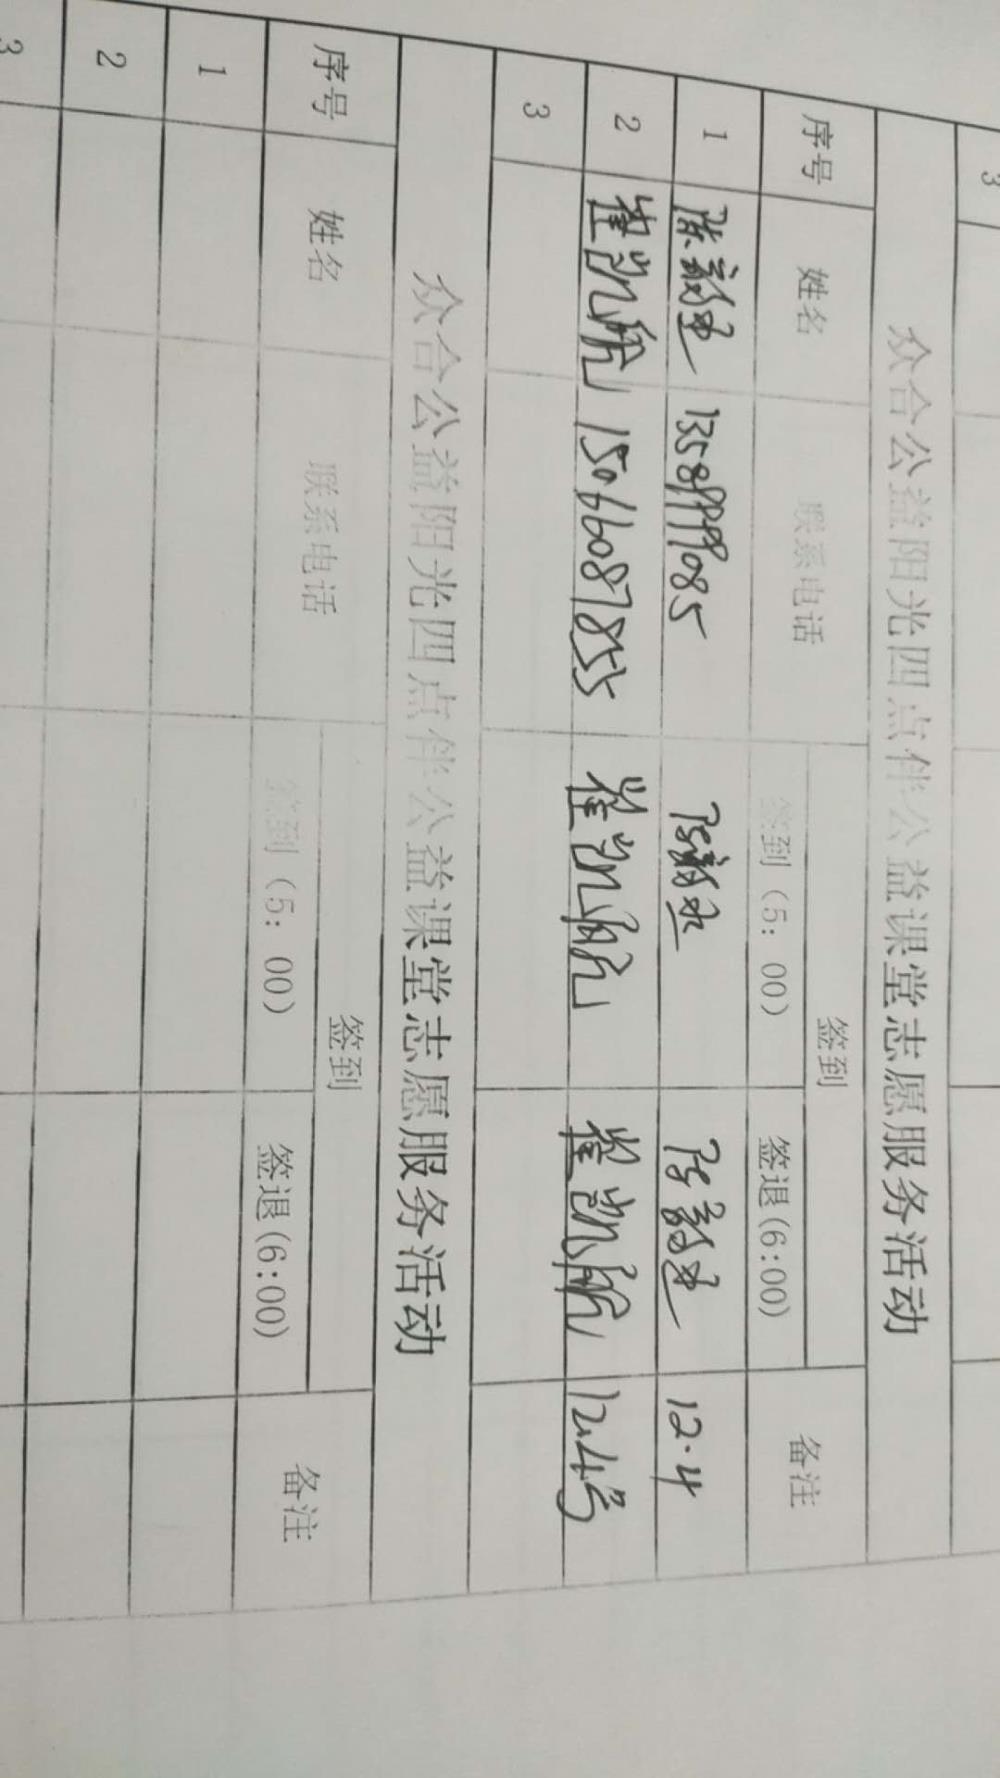 3
众合公益阳光四点伴公益课堂志愿服务活动
序号 姓名 联系电话 签到 备注
签到（5：00） 签退(6:00)
1 陈 12.4
2 崔凯航 15066087855 崔凯航 崔凯航 12.4号
3
众合公益阳光四点伴公益课堂志愿服务活动
序号 姓名 联系电话 签到 备注
签到（5：00） 签退(6:00)
1
2
3